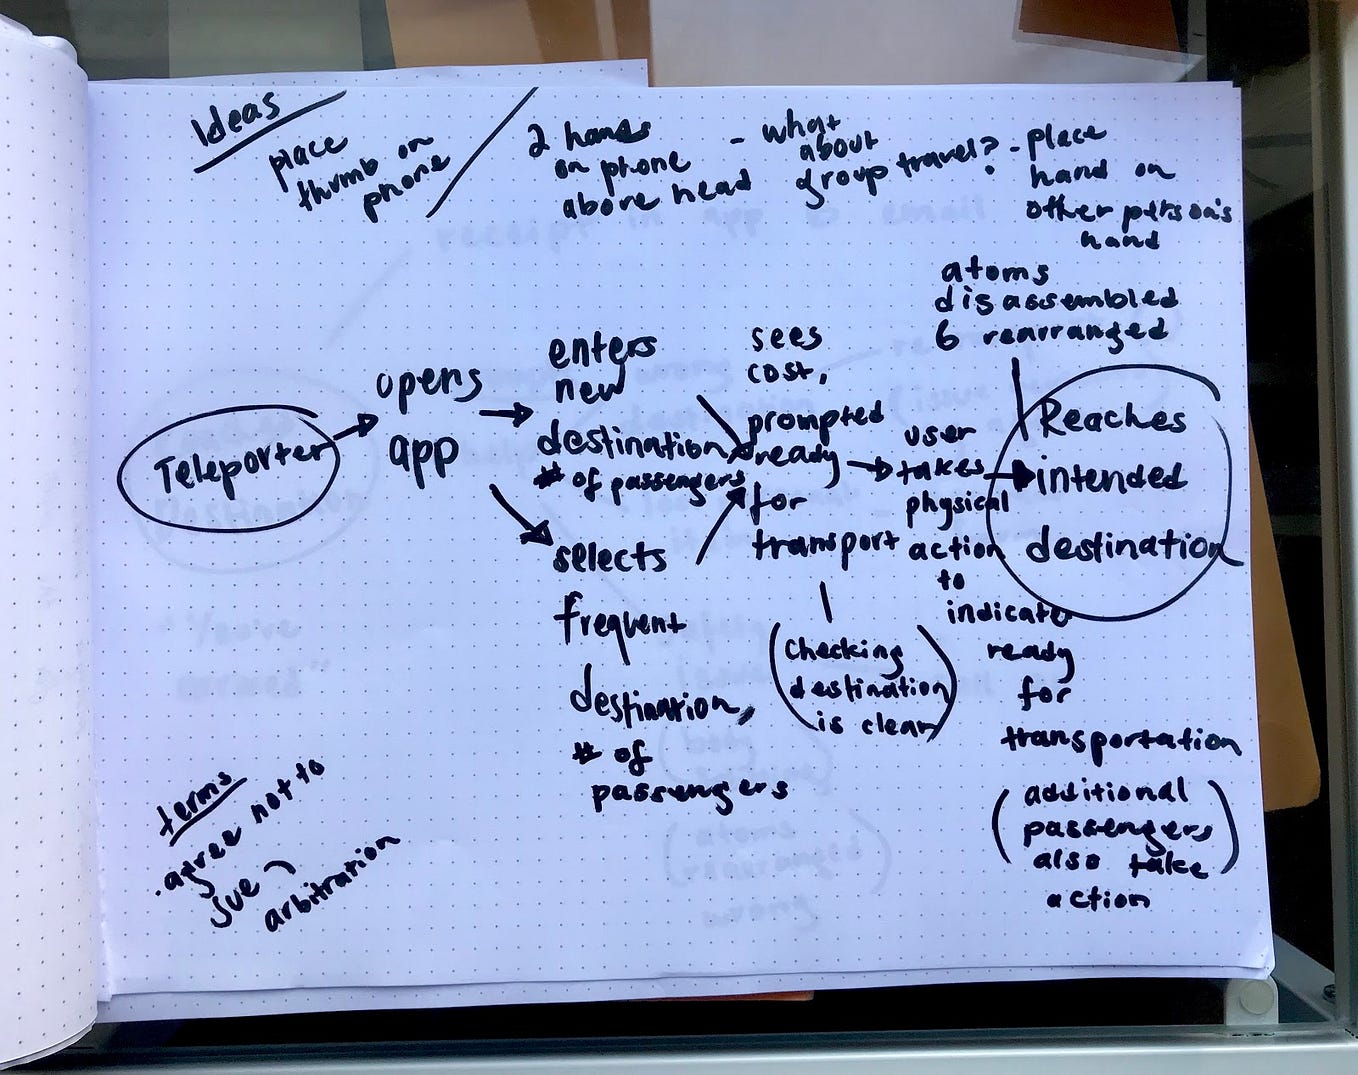 Ideas
place
thumb on
phone
2 hands
on phone
above head
- what
about
group travel?
- place
hand on
other person's
hand
atoms
disassembled
& rearranged
Teleporter
opens
app
enters
new
destination
# of passengers
selects
frequent
destination,
# of
passengers
sees
cost,
prompted
ready
for
transport
(checking
destination
is clear)
user
takes
physical
action
to
indicate
ready
for
transportation
(additional
passengers
also take
action)
Reaches
intended
destination
terms
. agree not to
sue
arbitration
receipt in app & email